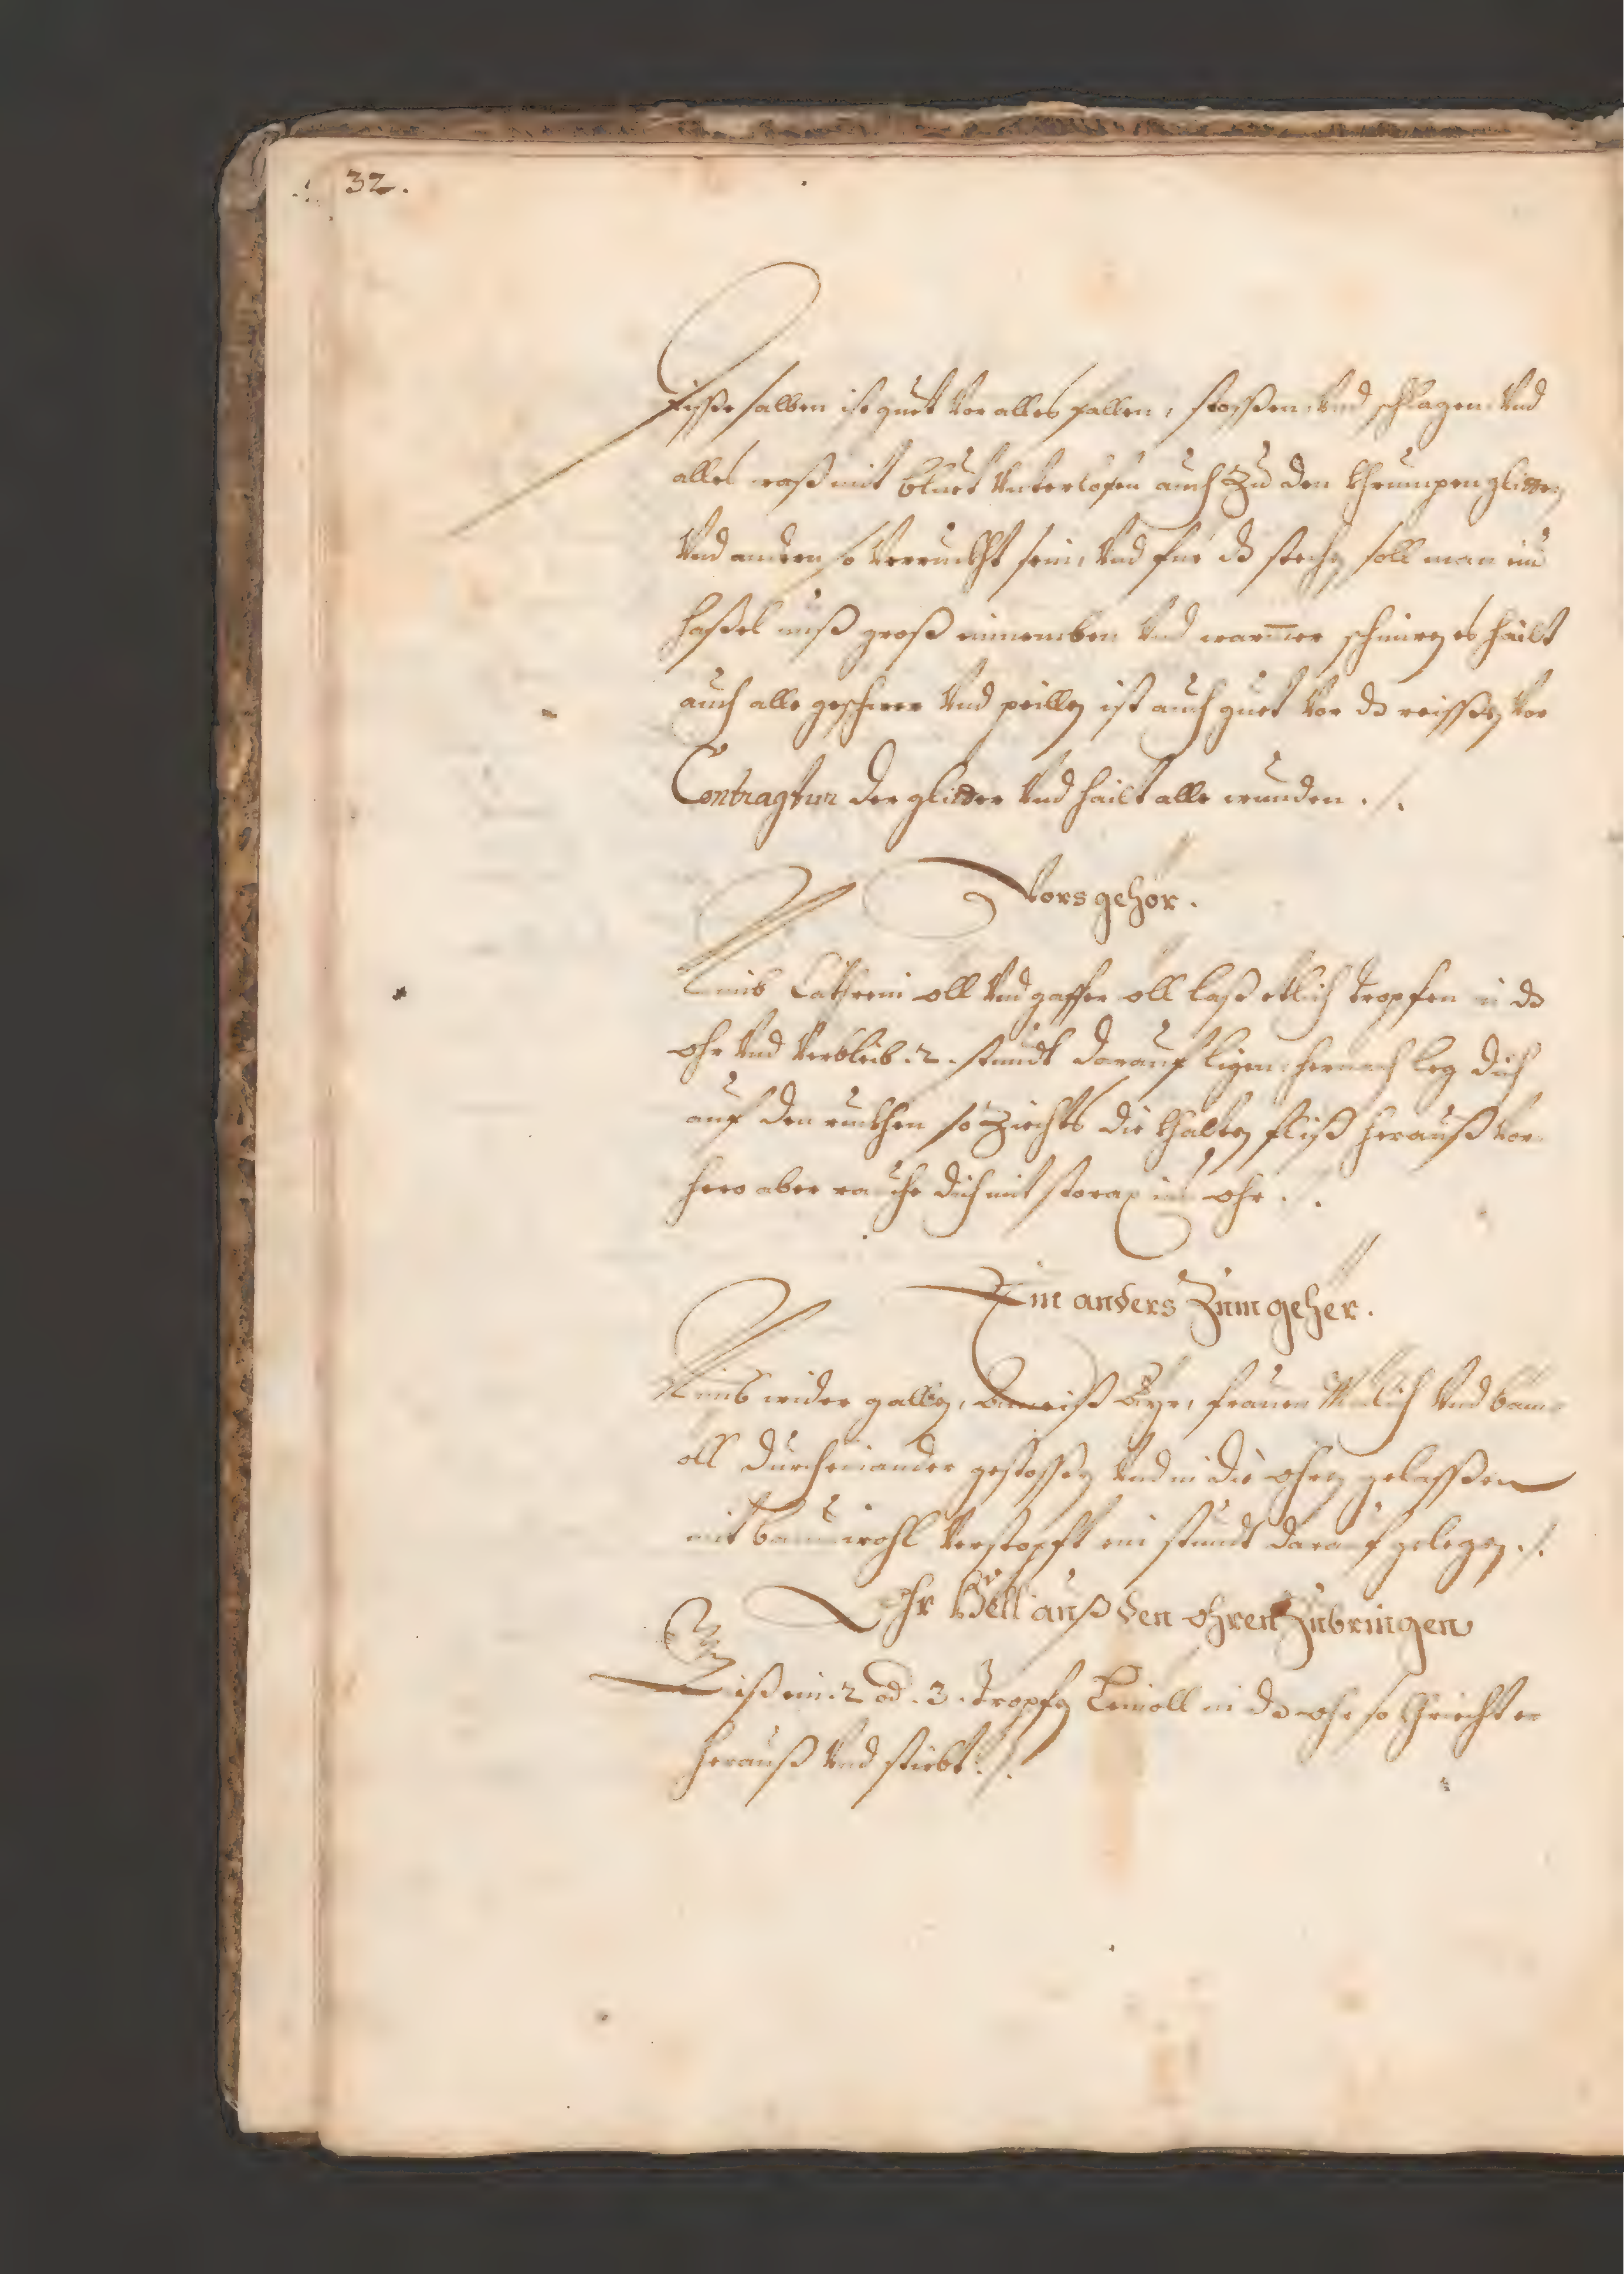 32.
Diße salben ist guet vor alles fallen, stoßen, vnd schlagen vnd
alles waß mit bluet vnterlofen auch zu den khrumpen glidern
vnd andern so verruckht sein, vnd für dz stechen soll man ein
haßel nuß groß einnemben vnd warmer schmiren es hailt
auch alle geschwer vnd peillen ist auch guet vor dz reissen vor
Contragtur der glider vnd hailt alle wunden ./.
Vors gehör.
Nimb oll vnd oll laß etlich tropfen in dz
ohr vnd verbleib .2. stundt darauf ligen hernach leg dich
auf den rückhen so ziechts die khalten fliß herauß vor
hero aber rauche dich mit storax ins ohr ./.
Ein anders zum gehör.
Nimb wider gallen, ameiß ayr, frauen milich vnd bam
oll durcheinander gestossen vnd in die ohren gelassen
mit baumwohl verstopft ein stundt darauf gelegen ./.
Ohr höll auß den ohren zubringen
Giß ein .2 od .3. tropfen Leinoll in dz ohr so khriecht er
herauß vnd stirbt ./.